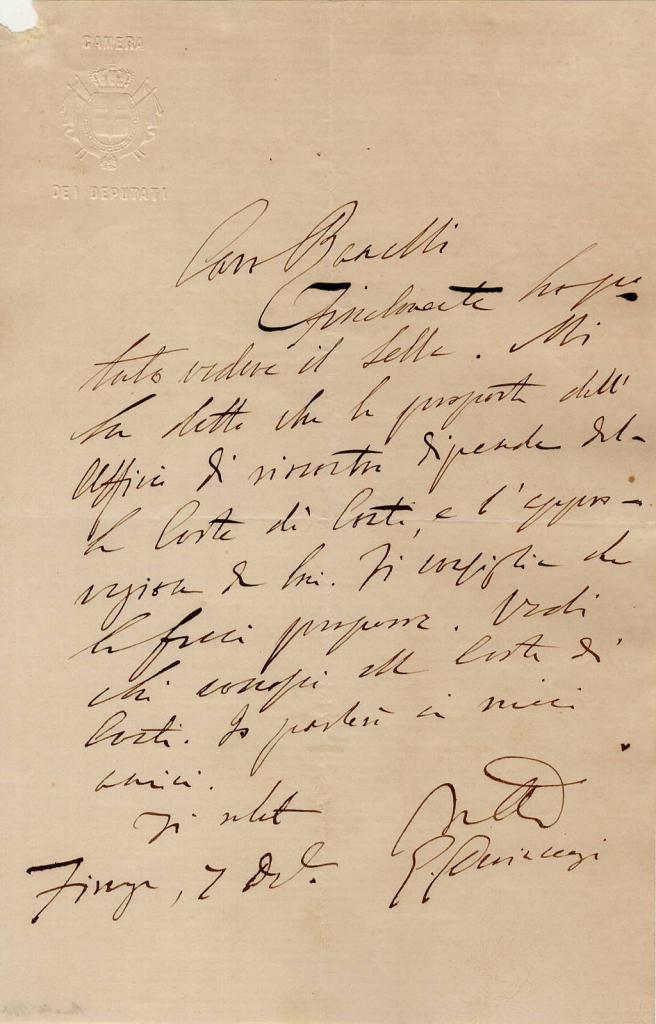 CAMERA
DEI DEPUTATI
Caro Bonelli
Finalmente ho po-
tuto vedere il Sella. Mi
ha detto che la proposta dell'
Ufficio di riscontro dipende del-
la Corte di Conti, e l'appro-
vazione da lui. Ti consiglia che
la facci proporre. Vedi
chi conosci alla Corte di
Conti. Io parlerò ai miei
amici.
Ti saluto
Firenze, 7 Dic.